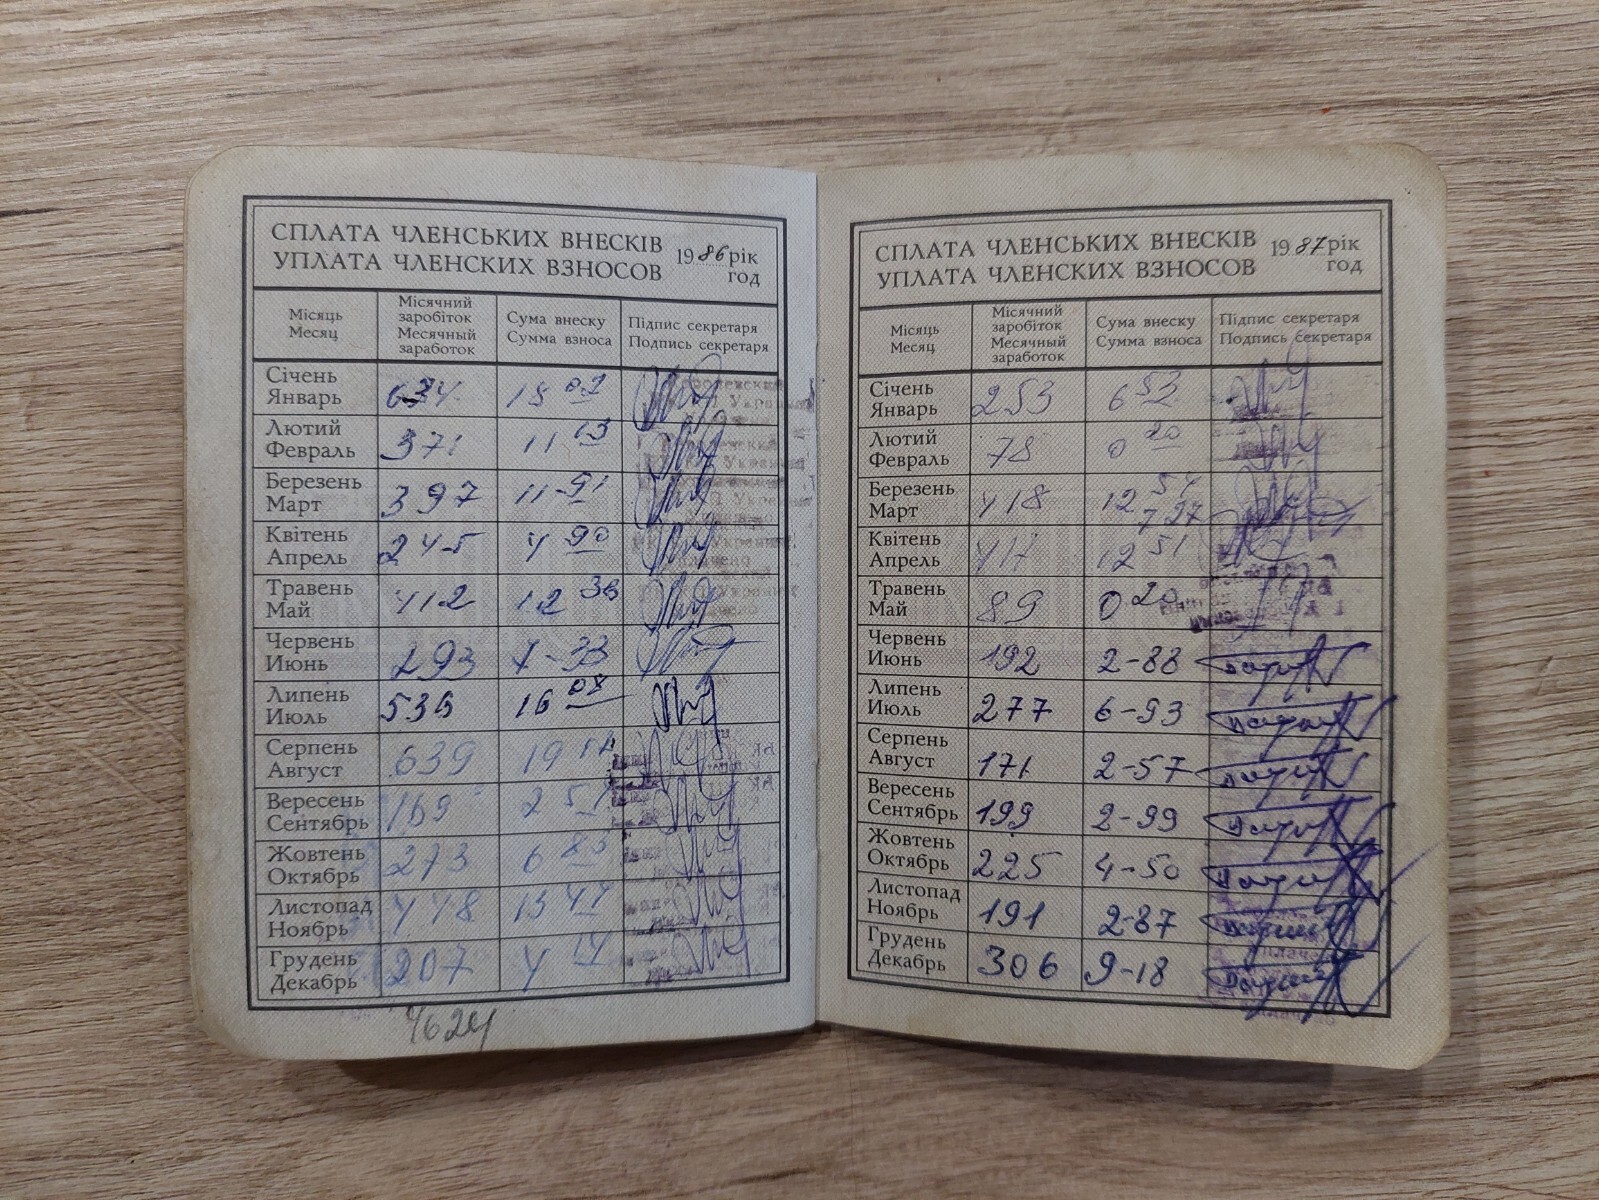 СПЛАТА ЧЛЕНСЬКИХ ВНЕСКІВ 1986 рік
УПЛАТА ЧЛЕНСКИХ ВЗНОСОВ год
Місяць Місячний заробіток Сума внеску Підпис секретаря
Месяц Месячный заработок Сумма взноса Подпись секретаря
Січень
Январь 634 18
Лютий
Февраль 371 11 13
Березень
Март 397 11-91
Квітень
Апрель 245 4 90
Травень
Май 412 12 36
Червень
Июнь 293 7-33
Липень
Июль 536 16 08
Серпень
Август 639 19
Вересень
Сентябрь 169 2
Жовтень
Октябрь 273 6
Листопад
Ноябрь 448 13 44
Грудень
Декабрь 207 4 14
4624
СПЛАТА ЧЛЕНСЬКИХ ВНЕСКІВ 1987 рік
УПЛАТА ЧЛЕНСКИХ ВЗНОСОВ год
Місяць Місячний заробіток Сума внеску Підпис секретаря
Месяц Месячный заработок Сумма взноса Подпись секретаря
Січень
Январь 253 6 32
Лютий
Февраль 78 0 20
Березень
Март 418 12 54
7 27
Квітень
Апрель 417 12 51
Травень
Май 89 0 20
Червень
Июнь 192 2-88
Липень
Июль 277 6-93
Серпень
Август 171 2-57
Вересень
Сентябрь 199 2-99
Жовтень
Октябрь 225 4-50
Листопад
Ноябрь 191 2-87
Грудень
Декабрь 306 9-18